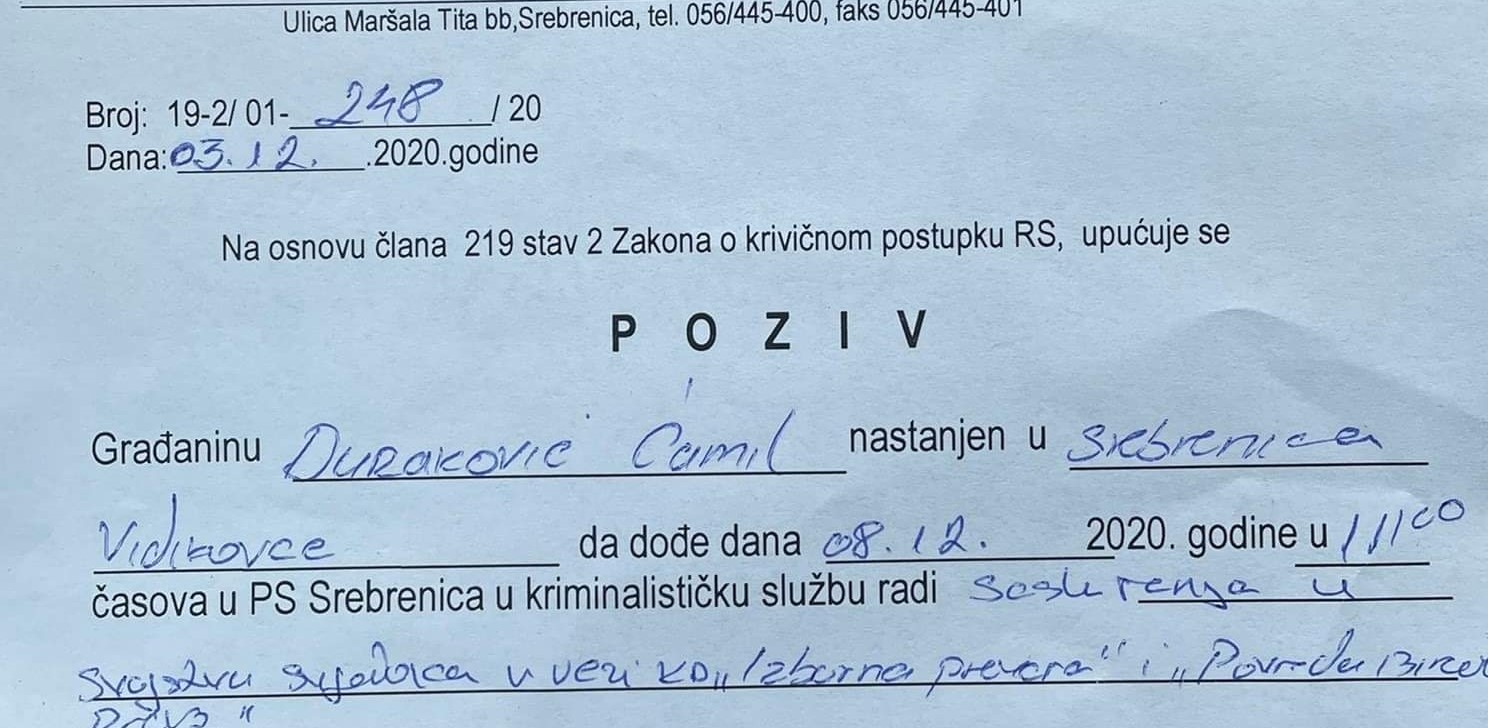 Ulica Maršala Tita bb,Srebrenica, tel. 056/445-400, faks 056/445-401
Broj: 19-2/ 01- 248 / 20
Dana: 03.12. .2020.godine
Na osnovu člana 219 stav 2 Zakona o krivičnom postupku RS, upućuje se
P O Z I V
Građaninu Duraković Ćamil nastanjen u Srebrenica
Vidikovce da dođe dana 08.12. 2020. godine u 11 00
časova u PS Srebrenica u kriminalističku službu radi u
svojstvu svjedoka u vezi KD „Izborna prevara" i „Povreda